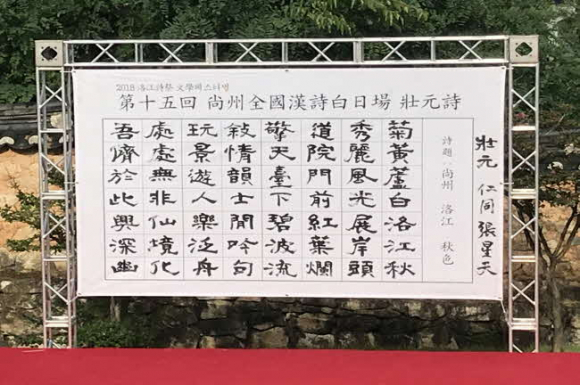 2018 洛江詩祭 文學페스티벌
第十五回 尙州全國漢詩白日場 壯元詩
壯元 仁同 張星天
詩題 : 尙州 洛江 秋色
菊黃蘆白洛江秋
秀麗風光展岸頭
道院門前紅葉爛
擎天臺下碧波流
敍情韻士閒吟句
玩景遊人樂泛舟
處處無非仙境化
吾儕於此興深幽